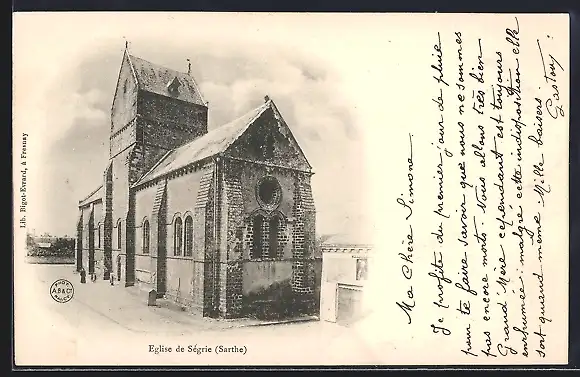 Lib. Bigot-Evrard, à Fresnay
Eglise de Ségrie (Sarthe)
A.B & C
Ma chère Simone.
Je profite du premier jour de pluie
pour te faire savoir que nous ne sommes
pas encore morts. Nous allons très bien
Grand'Mère cependant est toujours
enrhumée; malgré cette indisposition elle
sort quand même. Mille baisers
Gaston